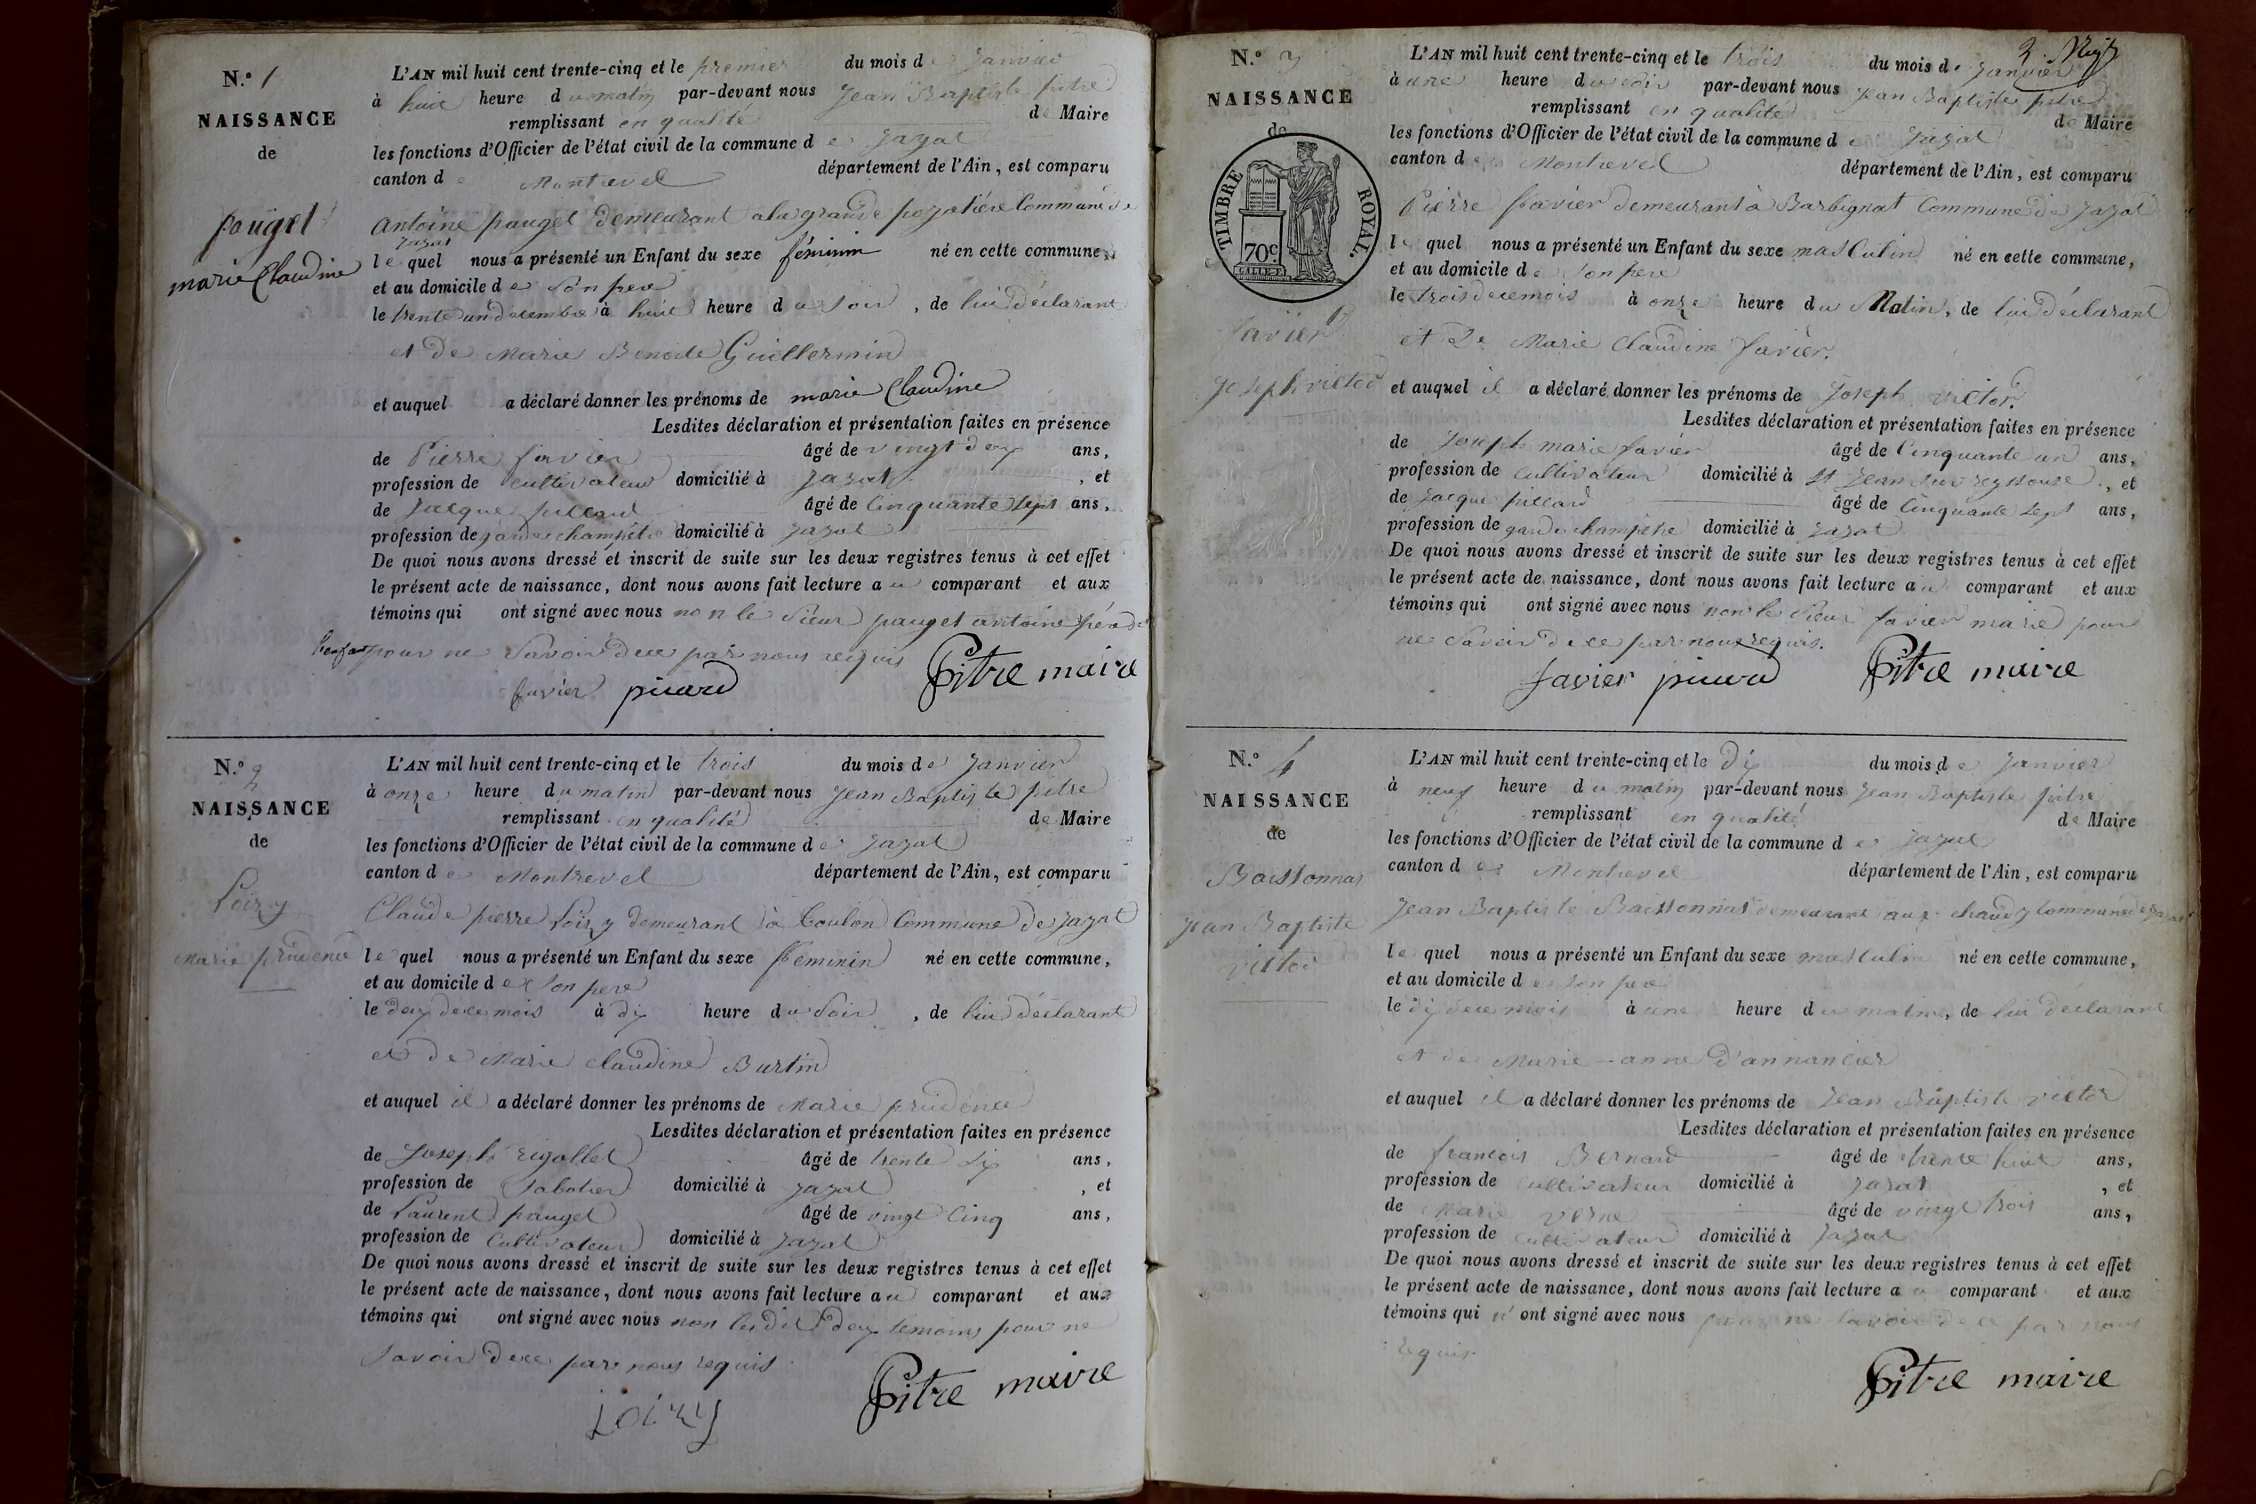 N.º 1
NAISSANCE
de
pouget
marie Claudine
L'AN mil huit cent trente-cinq et le premier du mois de Janvier
à huit heure du matin par-devant nous Jean Baptiste pitre
remplissant en qualité de Maire
les fonctions d'Officier de l'état civil de la commune de Jayat
canton de Montrevel département de l'Ain, est comparu
Antoine pauget demeurant a la grande Commune de
Jayat
le quel nous a présenté un Enfant du sexe féminin né en cette commune,
et au domicile de Son pere
le trente un decembre à huit heure du Soir, de lui déclarant
et de Marie Benoite Guillermin
et auquel a déclaré donner les prénoms de marie Claudine
Lesdites déclaration et présentation faites en présence
de Pierre favier âgé de vingt deux ans,
profession de cultivateur domicilié à Jayat, et
de Jacque âgé de Cinquante Sept ans,
profession de garde champêtre domicilié à Jayat
De quoi nous avons dressé et inscrit de suite sur les deux registres tenus à cet effet
le présent acte de naissance, dont nous avons fait lecture au comparant et aux
témoins qui ont signé avec nous non le Sieur pauget antoine père de
l'enfant pour ne Savoir de ce par nous requis
favier picard Pitre maire
N.º 2
NAISSANCE
de
Loizy
Marie prudence
L'AN mil huit cent trente-cinq et le trois du mois de Janvier
à onze heure du matin par-devant nous Jean Baptiste pitre
remplissant en qualité de Maire
les fonctions d'Officier de l'état civil de la commune de Jayat
canton de Montrevel département de l'Ain, est comparu
Claude pierre Loizy demeurant à Coulon Commune de Jayat
le quel nous a présenté un Enfant du sexe féminin né en cette commune,
et au domicile de Son pere
le deux de ce mois à dix heure du Soir, de lui déclarant
et de Marie Claudine Burtin
et auquel il a déclaré donner les prénoms de Marie prudence
Lesdites déclaration et présentation faites en présence
de Joseph Rigollet âgé de trente Six ans,
profession de Sabotier domicilié à Jayat, et
de Laurent pauget âgé de vingt Cinq ans,
profession de Cultivateur domicilié à Jayat
De quoi nous avons dressé et inscrit de suite sur les deux registres tenus à cet effet
le présent acte de naissance, dont nous avons fait lecture au comparant et aux
témoins qui ont signé avec nous non les dits deux temoins pour ne
Savoir de ce par nous requis
Loizy Pitre maire
2.
N.º 3
NAISSANCE
de
TIMBRE ROYAL.
70 c.
favier
Joseph victor
L'AN mil huit cent trente-cinq et le trois du mois de Janvier
à une heure du soir par-devant nous Jean Baptiste pitre
remplissant en qualité de Maire
les fonctions d'Officier de l'état civil de la commune de Jayat
canton de Montrevel département de l'Ain, est comparu
Pierre favier demeurant à Barbignat Commune de Jayat
le quel nous a présenté un Enfant du sexe masculin né en cette commune,
et au domicile de Son pere
le trois de ce mois à onze heure du Matin, de lui déclarant
et de Marie Claudine favier.
et auquel il a déclaré donner les prénoms de Joseph victor.
Lesdites déclaration et présentation faites en présence
de Joseph marie favier âgé de Cinquante un ans,
profession de cultivateur domicilié à St Jean sur reyssouse, et
de Jacque âgé de Cinquante Sept ans,
profession de garde champêtre domicilié à Jayat
De quoi nous avons dressé et inscrit de suite sur les deux registres tenus à cet effet
le présent acte de naissance, dont nous avons fait lecture au comparant et aux
témoins qui ont signé avec nous non le Sieur favier marie pour
ne Savoir de ce par nous requis.
favier picard Pitre maire
N.º 4
NAISSANCE
de
Boissonnas
Jean Baptiste
victor
L'AN mil huit cent trente-cinq et le dix du mois de Janvier
à neuf heure du matin par-devant nous Jean Baptiste pitre
remplissant en qualité de Maire
les fonctions d'Officier de l'état civil de la commune de Jayat
canton de Montrevel département de l'Ain, est comparu
Jean Baptiste Boissonnas demeurant aux Commune de Jayat
le quel nous a présenté un Enfant du sexe masculin né en cette commune,
et au domicile de Son pere
le dix de ce mois à une heure du matin, de lui déclarant
et de Marie-anne d'annancier
et auquel il a déclaré donner les prénoms de Jean Baptiste victor
Lesdites déclaration et présentation faites en présence
de francois Bernard âgé de trente huit ans,
profession de cultivateur domicilié à Jayat, et
de Marie verne âgé de vingt trois ans,
profession de cultivateur domicilié à Jayat
De quoi nous avons dressé et inscrit de suite sur les deux registres tenus à cet effet
le présent acte de naissance, dont nous avons fait lecture au comparant et aux
témoins qui n'ont signé avec nous pour ne Savoir de ce par nous
requis.
Pitre maire